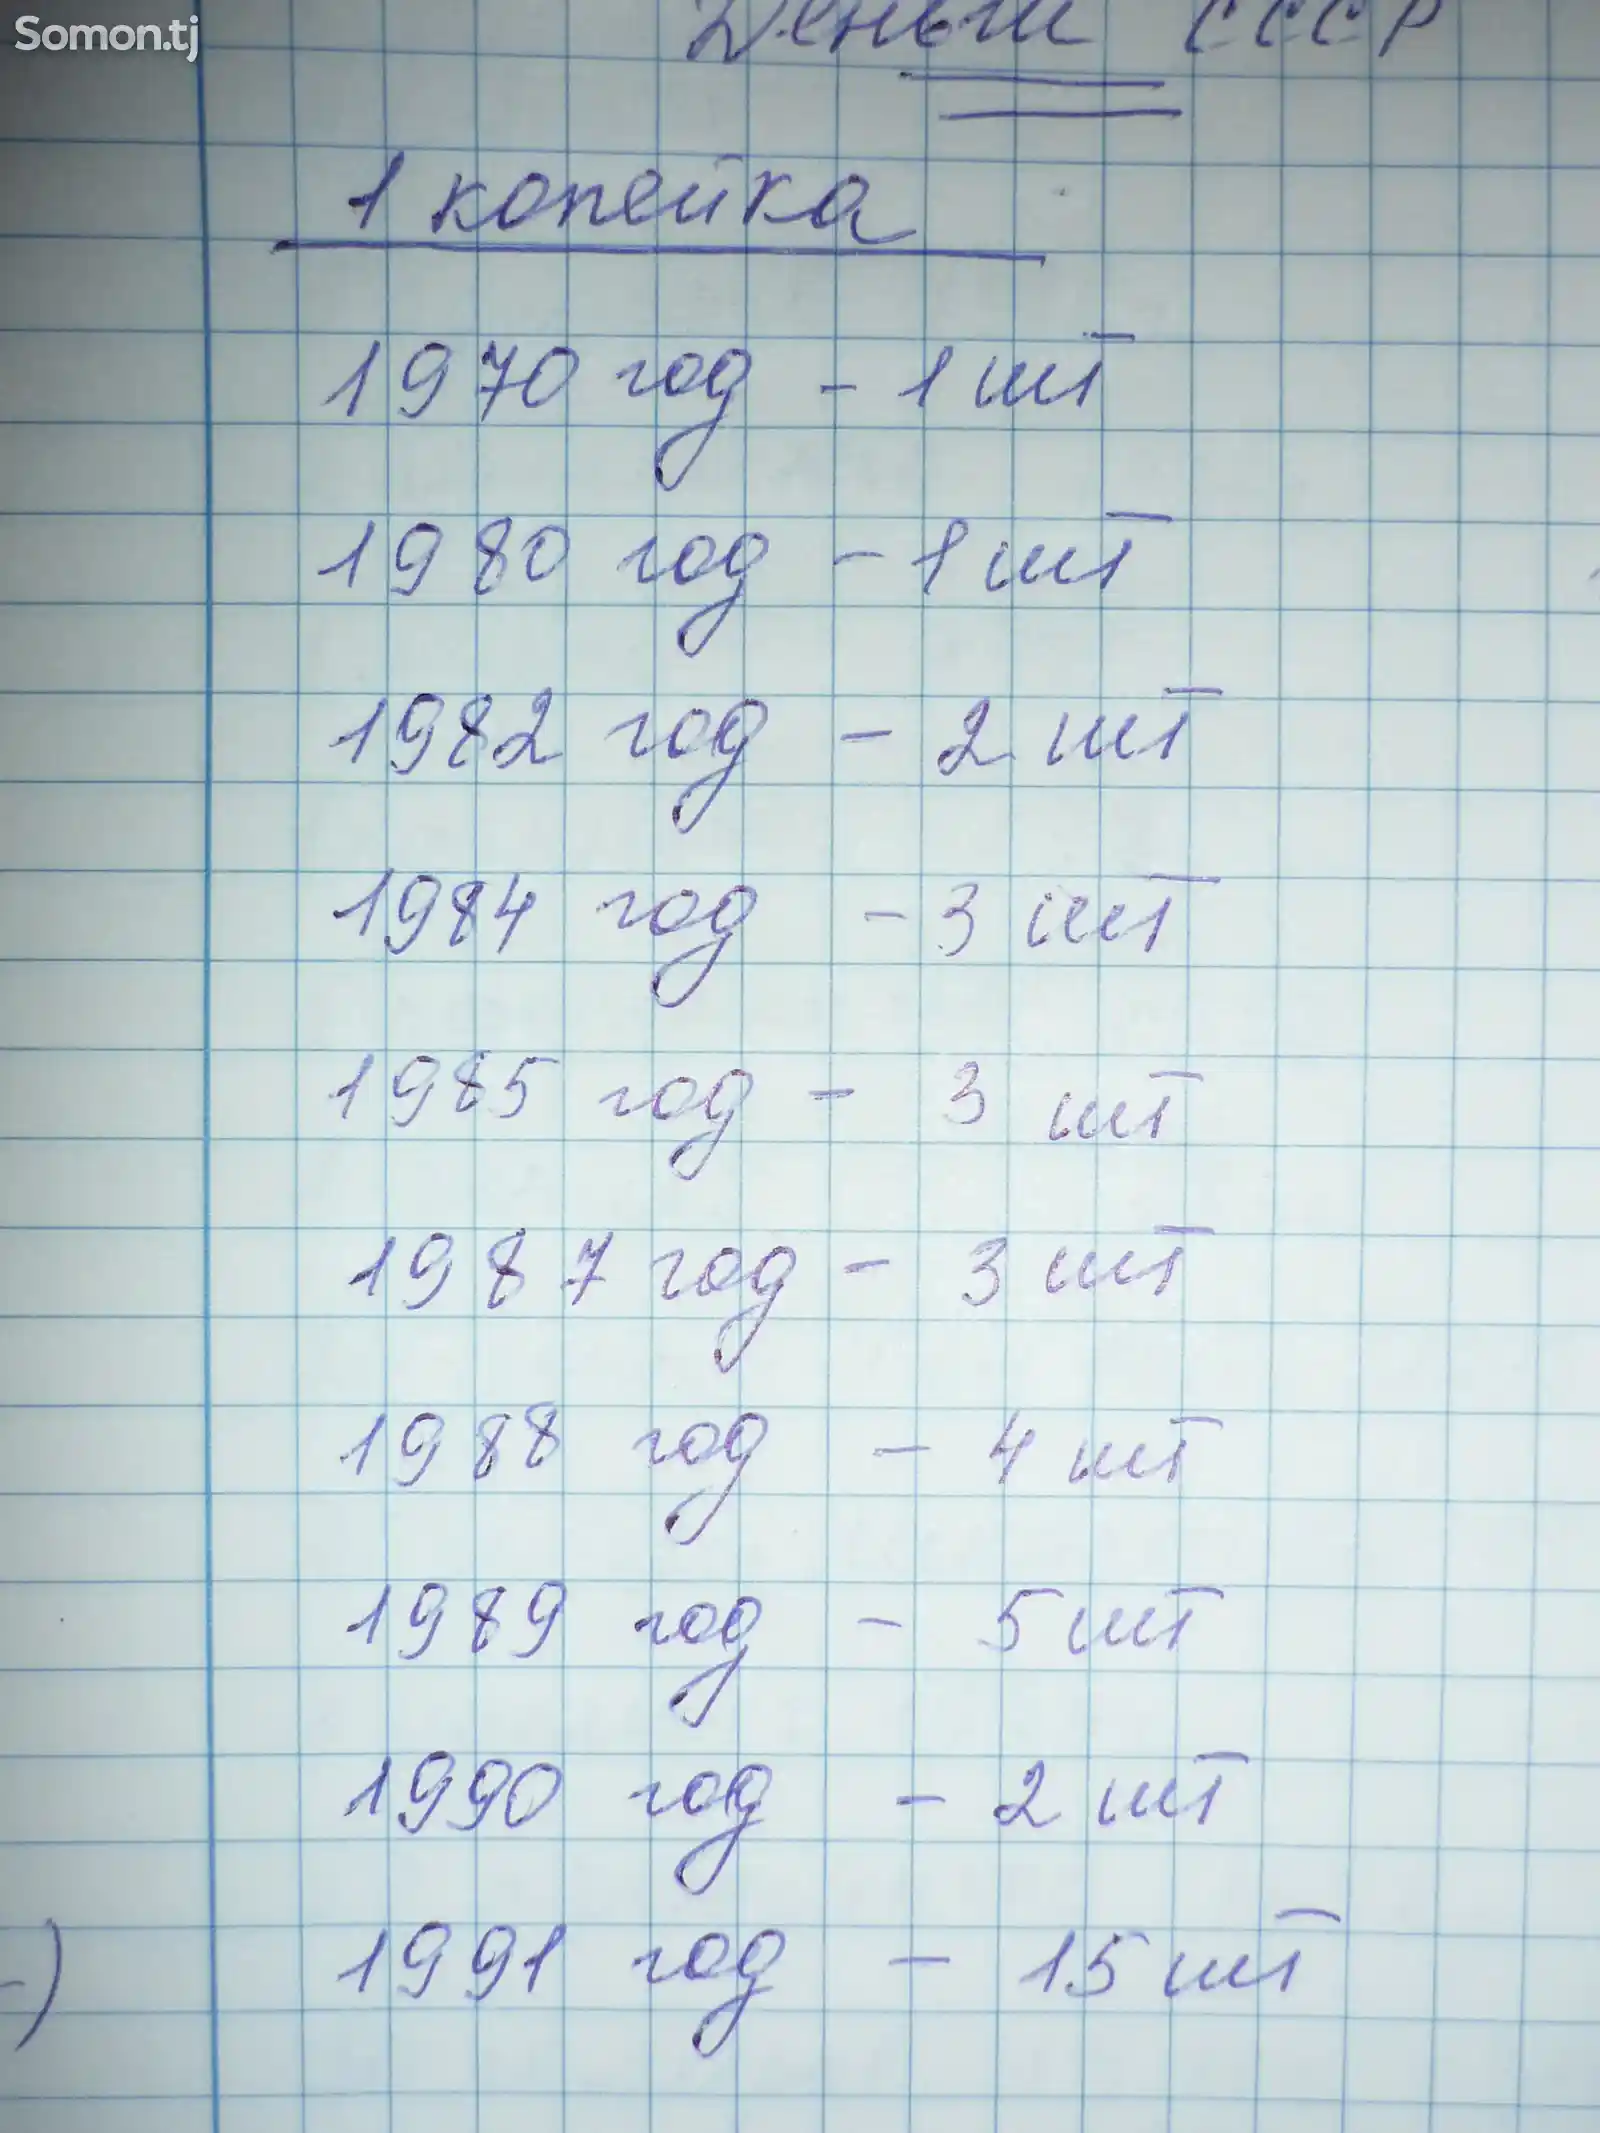 Somon.tj
Деньги СССР
1 копейка
1970 год - 1 шт
1980 год - 1 шт
1982 год - 2 шт
1984 год - 3 шт
1985 год - 3 шт
1987 год - 3 шт
1988 год - 4 шт
1989 год - 5 шт
1990 год - 2 шт
1991 год - 15 шт